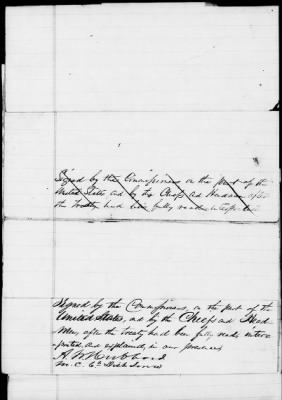 Signed by the Commissioners on the part of the
United States and by the Chiefs and Headmen after
the Treaty had been fully read & interpreted
Signed by the Commissioners, on the part of the
United States, and by the Chiefs and Head
Men, after the treaty had been fully read, inter-
preted, and explained, in our presence
A. W. Hubbard
M. C. 6th Dist Iowa